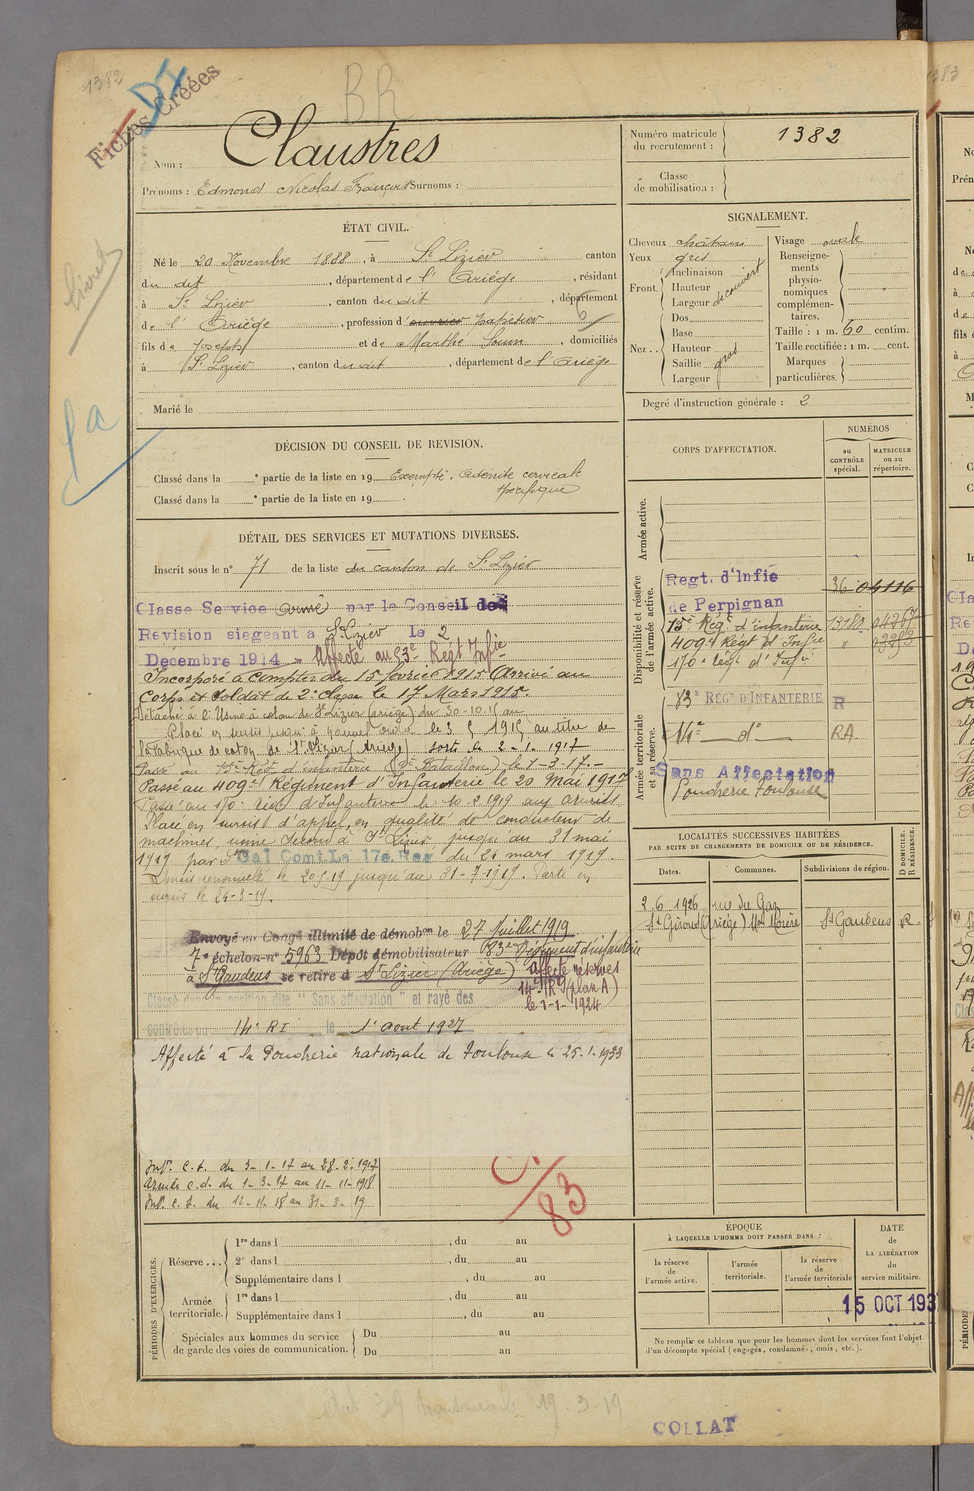 1382
Fiches Créées
BR
Nom : Claustres
Prénoms : Edmond Nicolas François Surnoms :
Numéro matricule du recrutement : 1382
Classe de mobilisation :
ÉTAT CIVIL.
Né le 20 Novembre 1888, à St Lizier canton
du dit, département de l'Ariège, résidant
à St Lizier, canton du dit, département
de l'Ariège, profession d'ouvrier papetier
fils de Joseph et de Marthe Soum, domiciliés
à St Lizier, canton du dit, département de l'Ariège
Marié le
SIGNALEMENT.
Cheveux châtain
Yeux gris
Front. Inclinaison
Hauteur
Largeur découvert
Nez.. Dos
Base
Hauteur
Saillie gros
Largeur
Visage ovale
Renseignements physionomiques complémentaires.
Taille : 1 m. 60 centim.
Taille rectifiée : 1 m. cent.
Marques particulières.
Degré d'instruction générale : 2
livret
DÉCISION DU CONSEIL DE REVISION.
Classé dans la e partie de la liste en 19 Exempté. Adénite cervicale
spécifique
Classé dans la e partie de la liste en 19
DÉTAIL DES SERVICES ET MUTATIONS DIVERSES.
Inscrit sous le n° 71 de la liste du canton de St Lizier
Classe Service Armé par le Conseil de
Revision siegeant a St Lizier le 2
Decembre 1914 Affecté au 83e Régt Infie
Incorporé à compter du 15 février 1915 Arrivé au
Corps et soldat de 2e classe le 17 Mars 1915.
Détaché à l'Usine à coton de St Lizier (Ariège) du 30-10-15 au
Placé en sursis jusqu'à nouvel ordre le 3 1915 au titre de
la fabrique de coton de St Lizier (Ariège) sorti le 2-1-1917
Passé au 15e Régt d'infanterie (9e Bataillon) le 1-3-17.
Passé au 409e Régiment d'Infanterie le 20 Mai 1917
Passé au 170e rég. d'Infanterie le 10-2 1919 aux armées
Placé en sursis d'appel en qualité de conducteur de
machines, usine à St Lizier jusqu'au 31 mai
1919 par Gal Comt. La 17e Reg du 24 mars 1919.
Sursis renouvelé le 20-5-19 jusqu'au 31-7-1919. Parti en
sursis le 24-3-19.
Envoyé en Congé illimité de démobon le 27 Juillet 1919
7e échelon n° 5963 Dépôt démobilisateur 83e Régiment d'infanterie
à St Gaudens se retire à St Lizier (Ariège)
affecté réserves
14e R (plan A)
le 1-1-1924
Classé dans la position dite "Sans affectation" et rayé des
contrôles du 14e RI le 1er Aout 1927
Affecté à la Poudrerie nationale de Toulouse le 25.1.1933
Int. c.d. du 3-1-17 au 28.2.1917
Armées c.d. du 1-3-17 au 11-11-1918
Int. c.d. du 12-11-18 au 31-3-19
83
CORPS D'AFFECTATION.
NUMÉROS
au CONTRÔLE spécial.
MATRICULE ou au répertoire.
Armée active.
Disponibilité et réserve de l'armée active.
Regt. d'Infie 36 04116
de Perpignan
15e Régt d'infanterie
409e Régt d'Infie
170e régt d'Infie
Armée territoriale et sa réserve.
83e RÉGt D'INFANTERIE R
14e do RA.
Sans Affectation
Poudrerie Toulouse
LOCALITÉS SUCCESSIVES HABITÉES
PAR SUITE DE CHANGEMENTS DE DOMICILE OU DE RÉSIDENCE.
Dates.
Communes.
Subdivisions de région.
D DOMICILE. R RÉSIDENCE.
2.6 1926 rue du Gaz
St Girons (Ariège) St Gaudens R
PÉRIODES D'EXERCICES.
Réserve ... 1re dans l , du au
2e dans l , du au
Supplémentaire dans l , du au
Armée territoriale. 1re dans l , du au
Supplémentaire dans l , du au
Spéciales aux hommes du service de garde des voies de communication. Du au
Du au
ÉPOQUE
À LAQUELLE L'HOMME DOIT PASSER DANS :
la réserve de l'armée active.
l'armée territoriale.
la réserve de l'armée territoriale
DATE DE LA LIBÉRATION du service militaire.
15 OCT 193
Ne remplir ce tableau que pour les hommes dont les services font l'objet
d'un décompte spécial (engagés, condamnés, omis, etc.).
COLLAT